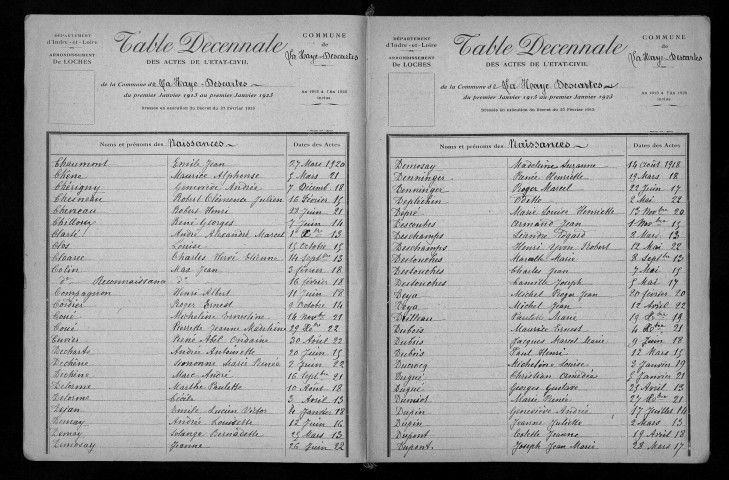 DÉPARTEMENT
d'Indre-et-Loire
ARRONDISSEMENT
De LOCHES
Table Decennale
DES ACTES DE L'ÉTAT-CIVIL
COMMUNE
de
La Haye-Descartes
de la Commune de La Haye-Descartes
du premier Janvier 1913 au premier Janvier 1923
Dressée en exécution du Décret du
Noms et prénoms des Naissances
Dates des Actes
Chaumont Emile Jean 27 Mars 1920
Chêne Maurice Alphonse 5 Mars 21
Chérigny Geneviève Andrée 7 Décemb. 18
Chesneau Robert Clémence Julien 16 Février 15
Chevreau Robert Henri 23 Juin 21
Chilloux René Georges 7 Juin 16
Clarté André Alexandre Marcel 1 Xbre 13
Clos Louise 15 Octobre 15
Cloarec Charles Hervé Etienne 14 Septbre 13
Colin Max Jean 3 Février 18
do Reconnaissance do 16 Février 18
Compagnon Henri Albert 11 Juin 18
Roger Ernest Octobre 16
Coué Micheline Ernestine 14 Novbre 21
Coué Pierrette Jeanne Madeleine 29 Xbre 22
Cuvier René Abel 30 Août 22
Decharte Andrée Antoinette 20 Juin 15
Dechêne Simonne Marie Renée 2 Juin 22
Dechêne Marc André 16 Septbre 21
Delorme Marthe Paulette 10 Août 18
Delorme Cécile 3 Avril 13
Dejan Emile Lucien Victor 4 Janvier 18
Demay Andrée Louisette 12 Juin 16
Demay Solange Bernadette 23 Mars 13
Jeanne 26 Juin 22
DÉPARTEMENT
d'Indre-et-Loire
ARRONDISSEMENT
De LOCHES
Table Decennale
DES ACTES DE L'ÉTAT-CIVIL
COMMUNE
de
La Haye-Descartes
de la Commune de La Haye Descartes
du premier Janvier 1913 au premier Janvier 1923
Dressée en exécution du Décret du
Noms et prénoms des Naissances
Dates des Actes
Madeleine Suzanne 14 Août 1918
Denninger Renée Henriette 19 Mars 18
Denninger Roger Marcel 22 Juin 17
Deplichen Odette 2 Mai 22
Dépré Marie Louise Henriette 13 Novbre 20
Descoubes Armand Jean 1 Novbre 15
Deschamps Léandre 8 Mars 13
Deschamps Henri Yvon Robert 12 Mai 22
Destouches Marcelle Marie 8 Septbre 13
Destouches Charles Jean 7 Mai 15
Destouches Camille Joseph 5 Mai 17
Deya Michel Roger Jean 20 Février 20
Deya Michel Jean 12 Avril 22
Paulette Marie 19 Xbre 14
Dubois Maurice Ernest 4 Xbre 21
Dubois Jacques Marcel Marie 9 Juin 18
Dubois Paul Henri 12 Mars 15
Ducrocq Micheline Louise 3 Janvier 19
Dugué Christian Amédée 5 Janvier 21
Dugué Georges Gustave 25 Avril 13
Marie Renée 27 Xbre 21
Dupin Geneviève Andrée 17 Juillet 14
Dupin Jeanne Juliette 2 Mars 13
Dupont Estelle Jeanne 19 Avril 18
Dupont Joseph Jean Marie 28 Mars 17